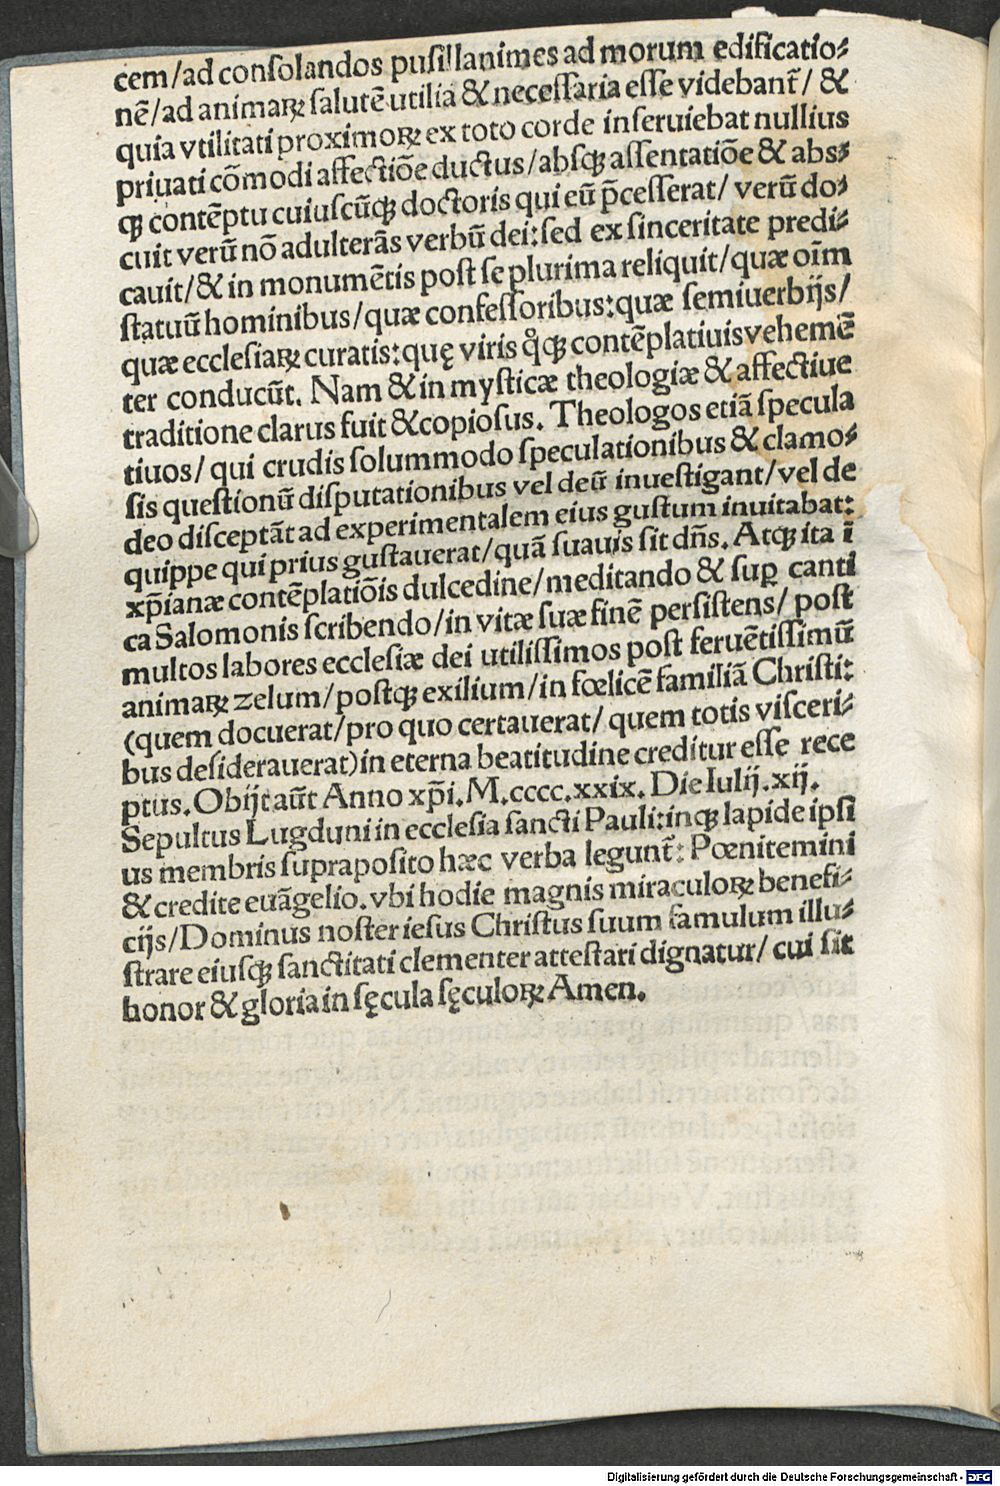 cem/ad conſolandos puſillanimes ad morum edificatio⸗
nē/ad animaꝝ ſalutē utilia & neceſſaria eſſe videbanť/ &
quia vtilitati proximoꝝ ex toto corde inſeruiebat nullius
priuati cōmodi affectiōe ductus/abſqꝫ aſſentatiōe & abs⸗
qꝫ contēptu cuiuſcūqꝫ doctoris qui eū p̄ceſſerat/ verū do⸗
cuit verū nō adulterās verbū dei: ſed ex ſinceritate predi⸗
cauit/& in monumētis poſt ſe plurima reliquit/quæ oīm
ſtatuū hominibus/quæ confeſſoribus: quæ ſemiuerbijs/
quæ eccleſiaꝝ curatis: quę viris qͦqꝫ contēplatiuis vehemē
ter conducūt. Nam & in myſticæ theologiæ & affectiue
traditione clarus fuit & copioſus. Theologos etiā ſpecula
tiuos/ qui crudis ſolummodo ſpeculationibus & clamo⸗
ſis queſtionū diſputationibus vel deū inueſtigant/vel de
deo diſceptāt ad experimentalem eius guſtum inuitabat:
quippe qui prius guſtauerat/quā ſuauis ſit dn̄s. Atqꝫ ita ī
xp̄ianæ contēplatiōis dulcedine/meditando & ſuꝑ canti
ca Salomonis ſcribendo/in vitæ ſuæ finē perſiſtens/ poſt
multos labores eccleſiæ dei utiliſſimos poſt feruētiſſimū
animaꝝ zelum/poſtqꝫ exilium/in fœlicē familiā Chriſti:
(quem docuerat/pro quo certauerat/ quem totis viſceri⸗
bus deſiderauerat) in eterna beatitudine creditur eſſe rece
ptus. Obijt aūt Anno xp̄i. M.cccc.xxix. Die Iulij.xij.
Sepultus Lugduni in eccleſia ſancti Pauli: inqꝫ lapide ipſi
us membris ſuprapoſito hæc verba legunť: Pœnitemini
& credite euāgelio. vbi hodie magnis miraculoꝝ benefi⸗
cijs/Dominus noſter ieſus Chriſtus ſuum famulum illu⸗
ſtrare eiuſqꝫ ſanctitati clementer atteſtari dignatur/ cui ſit
honor & gloria in ſęcula ſęculoꝝ Amen.
Digitalisierung gefördert durch die Deutsche Forschungsgemeinschaft - DFG